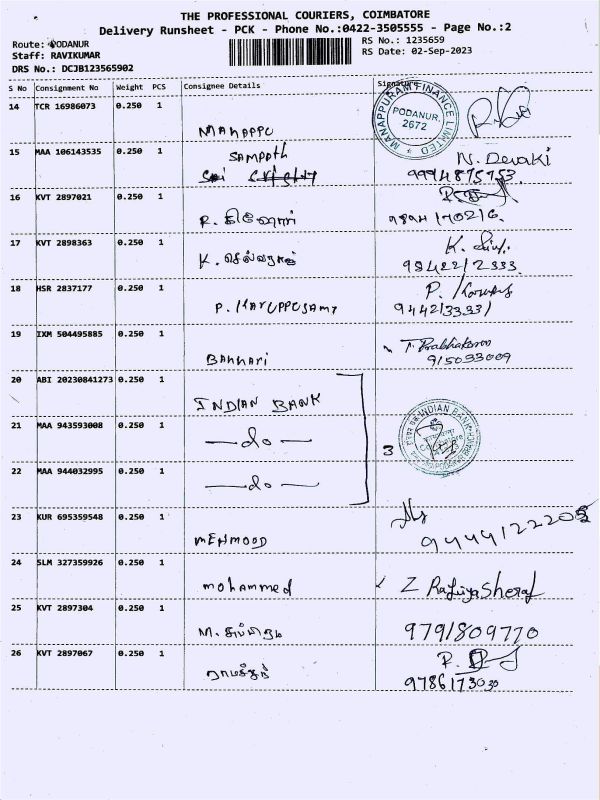 THE PROFESSIONAL COURIERS, COIMBATORE
Delivery Runsheet - PCK - Phone No.:0422-3505555 - Page No.:2
Route: PODANUR
RS No.: 1235659
Staff: RAVIKUMAR
RS Date: 02-Sep-2023
DRS No.: DCJB123565902
S No Consignment No Weight PCS Consignee Details Signature
14 TCR 16986073 0.250 1
MANAPPURAM FINANCE LIMITED
PODANUR.
2672
MANAPPU
15 MAA 106143535 0.250 1
SAMPATH
N. Devaki
16 KVT 2897021 0.250 1
R.
17 KVT 2898363 0.250 1
K.
K.
98422 12333
18 HSR 2837177 0.250 1
P.
P. KARUPPUSAMY
9442133331
19 IXM 504495885 0.250 1
T. Prabhakaran
BANNARI
915093009
20 ABI 20230841273 0.250 1
INDIAN BANK
21 MAA 943593008 0.250 1
INDIAN BANK
do
3
22 MAA 944032995 0.250 1
do
23 KUR 695359548 0.250 1
MEHMOOD
24 SLM 327359926 0.250 1
mohammed
Z
25 KVT 2897304 0.250 1
M.
9791809770
26 KVT 2897067 0.250 1
R.